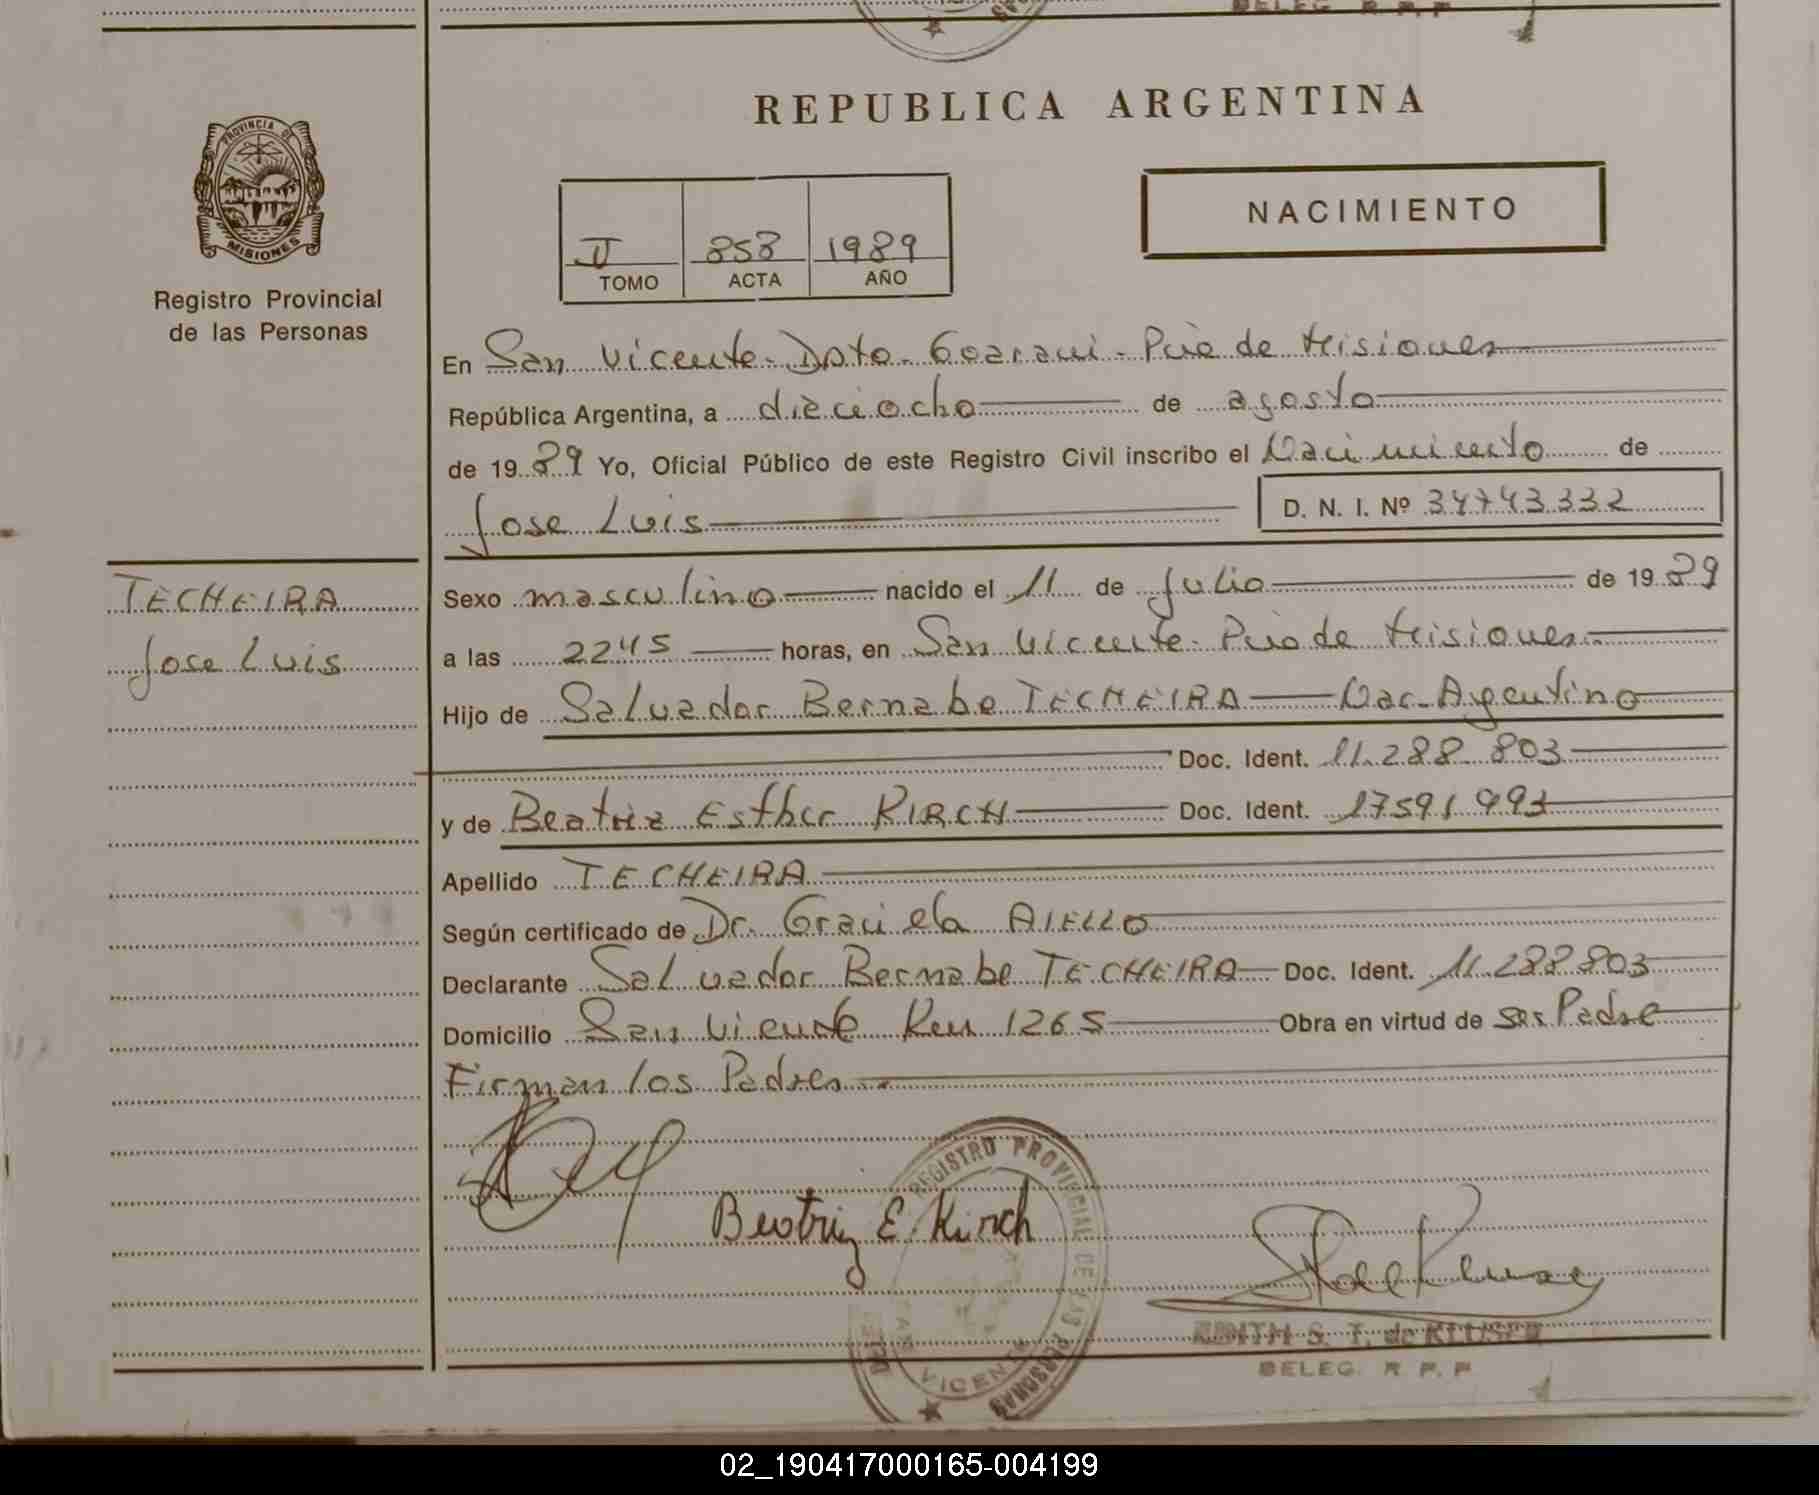 BELEG. R. P. P
REPUBLICA ARGENTINA
PROVINCIA DE
MISIONES
Registro Provincial
de las Personas
NACIMIENTO
II 858 1989
TOMO ACTA AÑO
En San Vicente - Dpto - Guarani - Pcia de Misiones
República Argentina, a dieciocho de agosto
de 1989 Yo, Oficial Público de este Registro Civil inscribo el Nacimiento de
Jose Luis D. N. I. Nº 34743332
TECHEIRA
Jose Luis
Sexo masculino nacido el 11 de Julio de 1989
a las 2245 horas, en San Vicente - Pcia de Misiones
Hijo de Salvador Bernabe TECHEIRA Nac. Argentino
Doc. Ident. 11.288.803
y de Beatriz Esther KIRCH Doc. Ident. 17591993
Apellido TECHEIRA
Según certificado de Dr. Graciela AIELLO
Declarante Salvador Bernabe TECHEIRA Doc. Ident. 11.288803
Domicilio San Vicente Km 1265 Obra en virtud de ser Padre
Firman los Padres
Beatriz E. Kirch
REGISTRO PROVINCIAL DE LAS PERSONAS
VICENTE
EDITH S. T. de KLUSER
BELEG. R. P. P
02_190417000165-004199